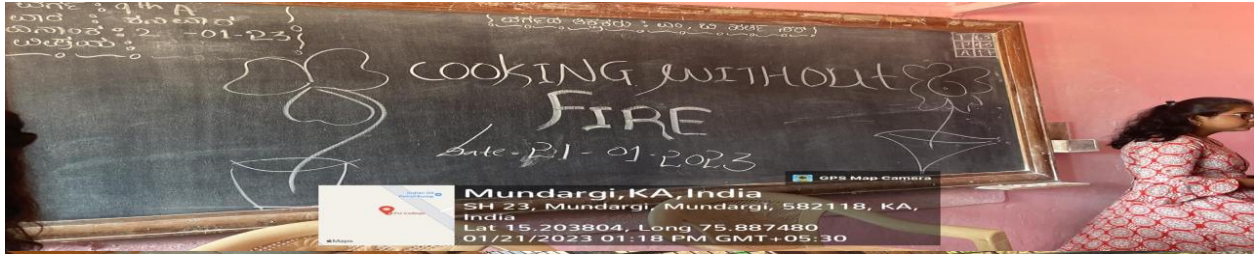 ವರ್ಗ : 9th A
ವಾರ : ಶನಿವಾರ
ದಿನಾಂಕ : 2 -01-23
ವಿಷಯ :
COOKING WITHOUT
FIRE
Date - 21-01-2023
GPS Map Camera
Mundargi,KA,India
SH 23, Mundargi, Mundargi, 582118, KA,
India
Lat 15.203804, Long 75.887480
01/21/2023 01:18 PM GMT+05:30